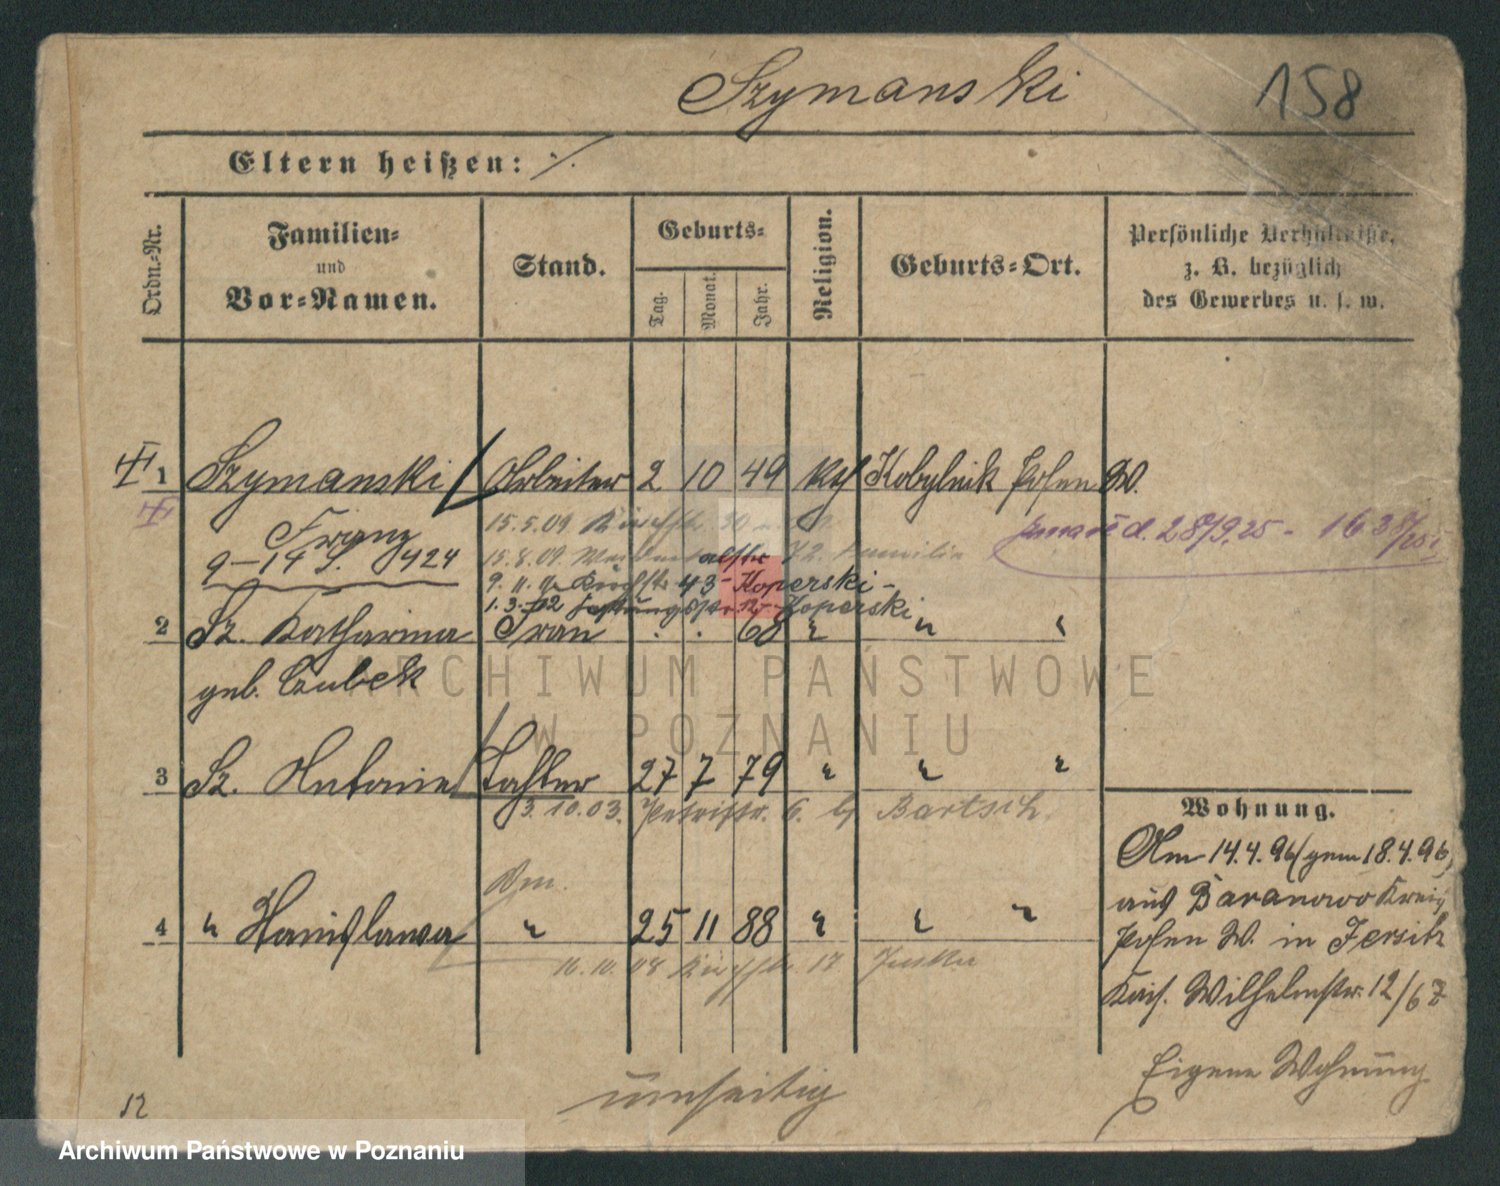 Szymanski 158
Eltern heißen: ./.
Ordn.-Nr.
Familien-
und
Vor-Namen.
Stand.
Geburts-
Tag.
Monat.
Jahr.
Religion.
Geburts-Ort.
Persönliche Verhältnisse,
z. B. bezüglich
des Gewerbes u. s. w.
1 Szymanski Arbeiter 2 10 49 kth Kobylnik Posen W.
Franz 15.5.09
9-14 424 15.8.09 72. Familie
9.11. 43 - Koperski -
1.3.12 Koperski
zmarł d. 28/9.25 -
2 Sz. Katharina Frau . . 68 " " "
geb. Czubek
3 Sz. Antonie Tochter 27 7 79 " " "
3.10.03. Petristr. 6. b/ Bartsch.
4 " Stanislawa " 25 11 88 " " "
16.10.08 17
Wohnung.
Am 14.4.96 (gem 18.4.96)
aus Baranowo Kreis
Posen W. in Jersitz
Kais. Wilhelmstr. 12/67
Eigene Wohnung
umseitig
12
ARCHIWUM PAŃSTWOWE
W POZNANIU
Archiwum Państwowe w Poznaniu